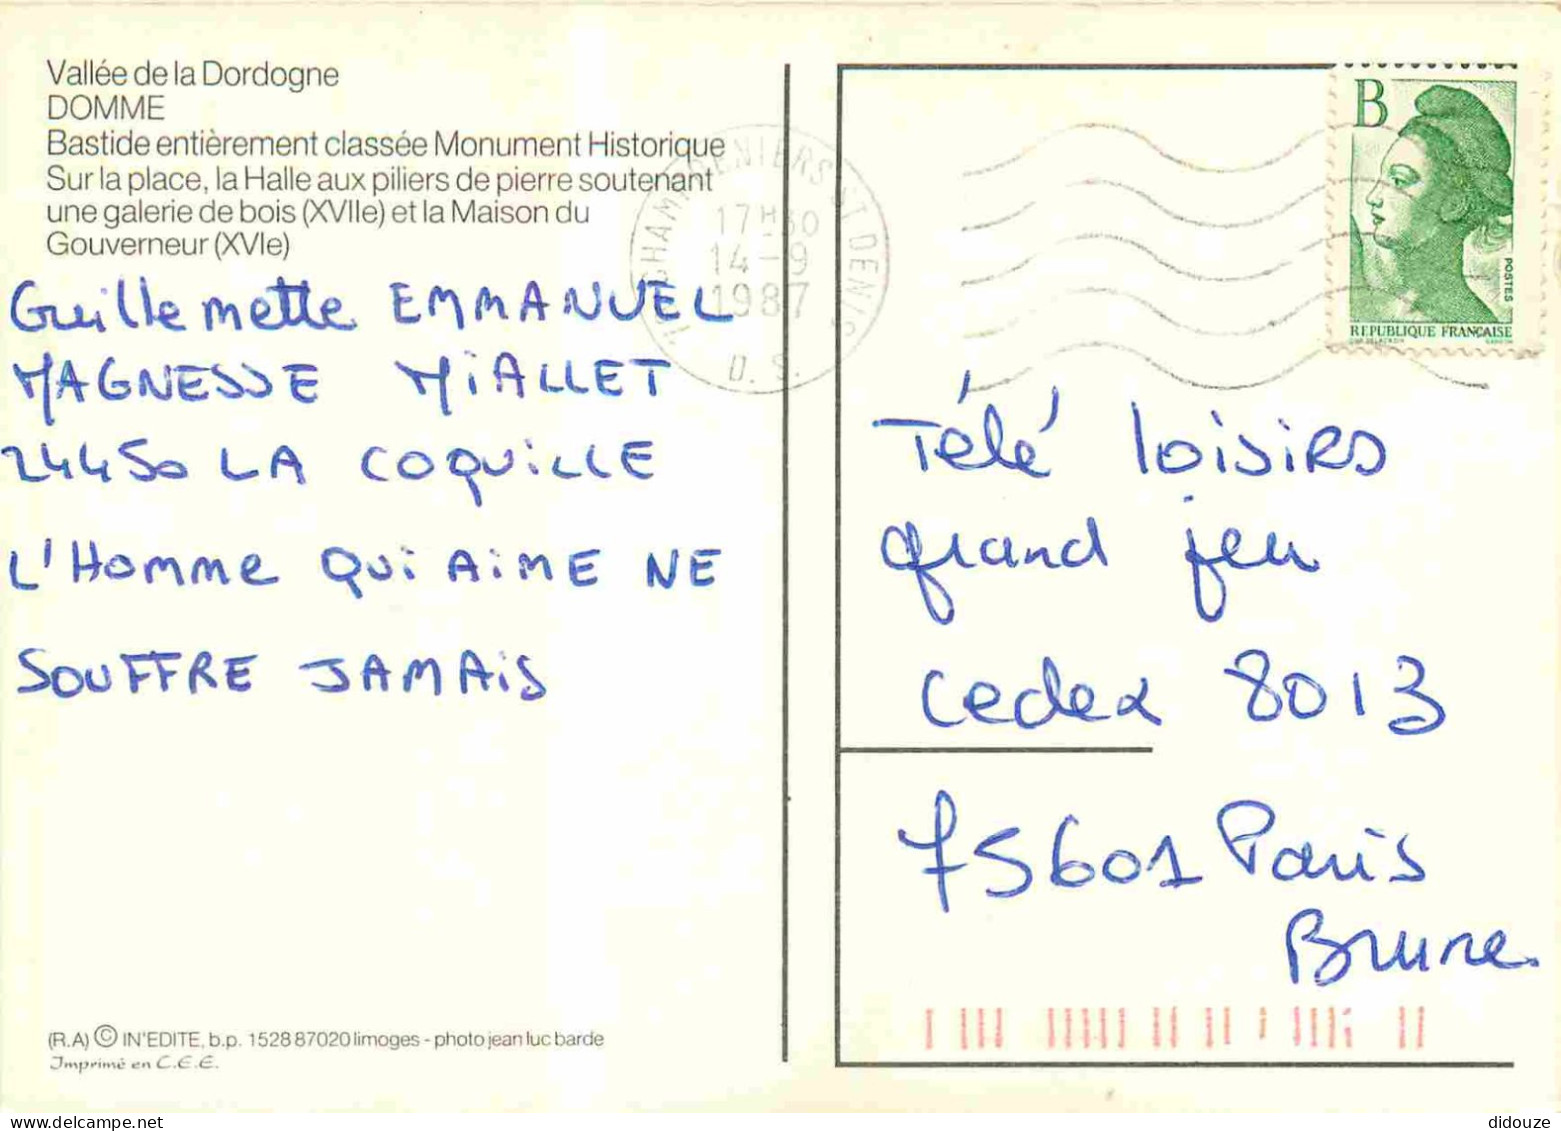 Vallée de la Dordogne
DOMME
Bastide entièrement classée Monument Historique
Sur la place, la Halle aux piliers de pierre soutenant
une galerie de bois (XVIIe) et la Maison du
Gouverneur (XVIe)
Guillemette EMMANUEL
MAGNESSE MiALLET
24450 LA COQUiLLE
L'Homme QUi AiME NE
SOUFFRE JAMAiS
(R.A) © IN'EDITE, b.p. 1528 87020 limoges - photo jean luc barde
Imprimé en C.E.E.
ST DENIS
14-9
1987
D. S.
B
POSTES
REPUBLIQUE FRANÇAISE
Télé loisirs
grand jeu
cedex 8013
75601 Paris
Brune
didouze